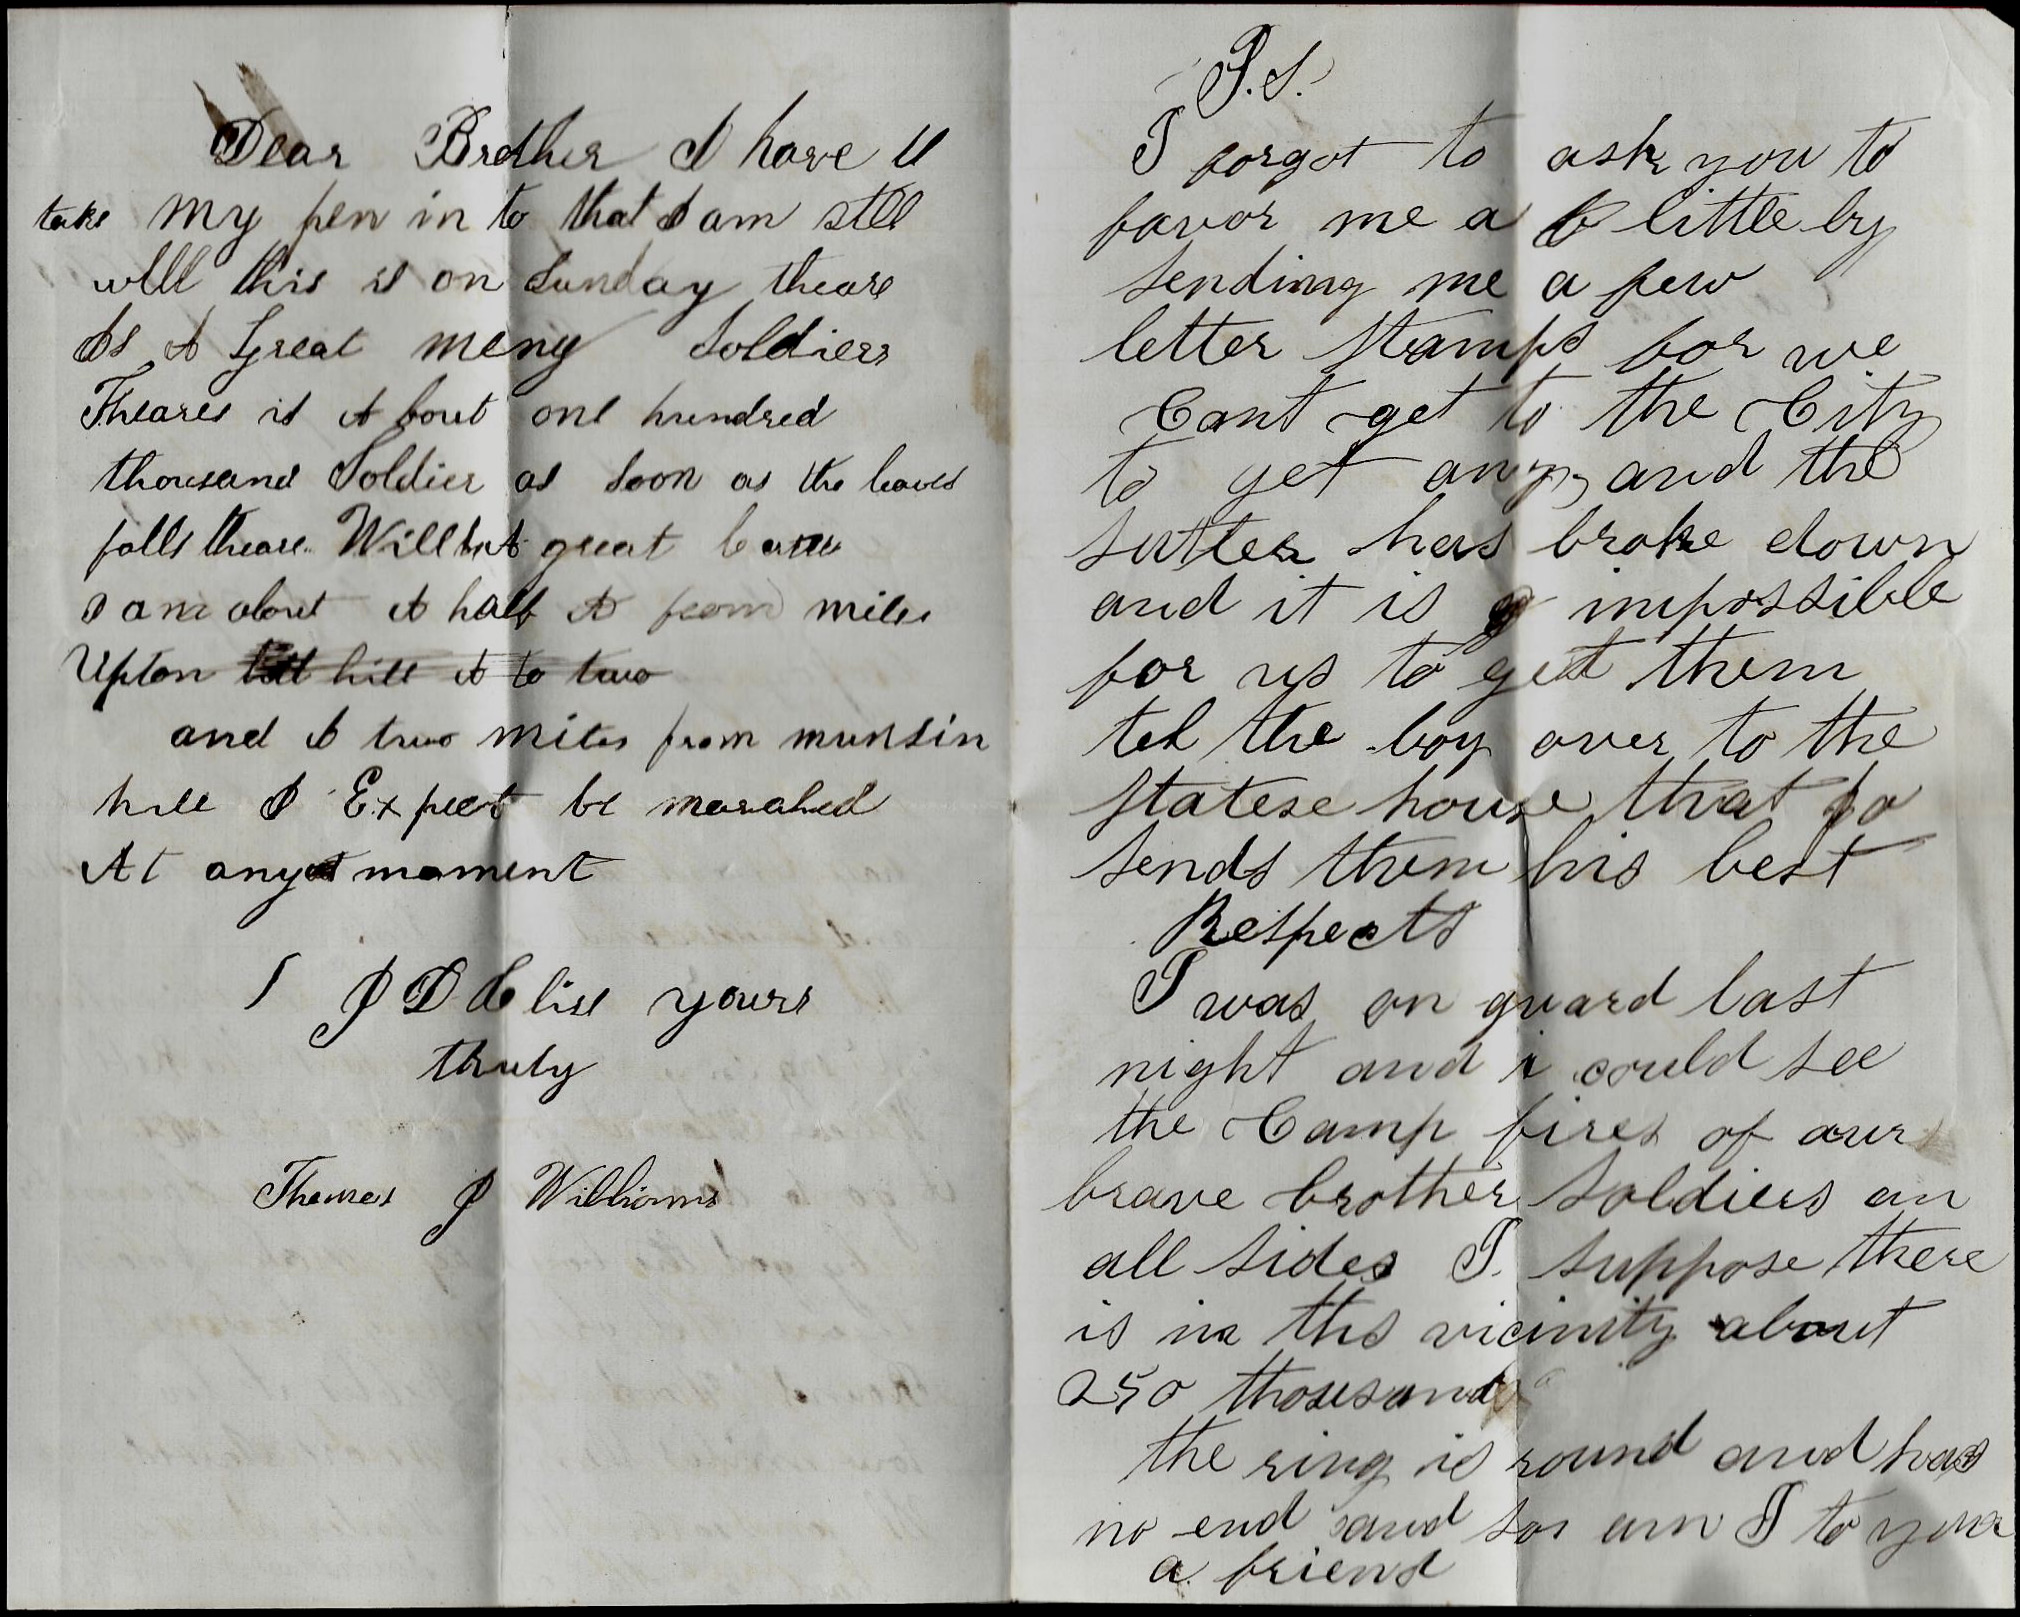 Dear Brother I have U
take my pen in to that I am still
will this is on Sunday theare
Is A Great meny Soldiers
Theares is A bout one hundred
thousand Soldier as Soon as the leaves
falls theare Will be A great
I am about A half A from miles
Upton hill A to two
and A two miles from munsin
hill I Expect be marahed
At any moment
J D Elise yours
truly
Thomes J Williams
P.S.
I forgot to ask you to
favor me a little by
sending me a few
letter stamps for we
Cant get to the City
to get any, and the
sutler has broke down
and it is impossible
for us to get them
tel the boy over to the
statese house that Jo
sends them his best
Respects
I was on guard last
night and i could see
the Camp fires of our
brave brother soldiers on
all sides I suppose there
is in this vicinity about
250 thousand
the ring is round and has
no end and so am I to you
a friend